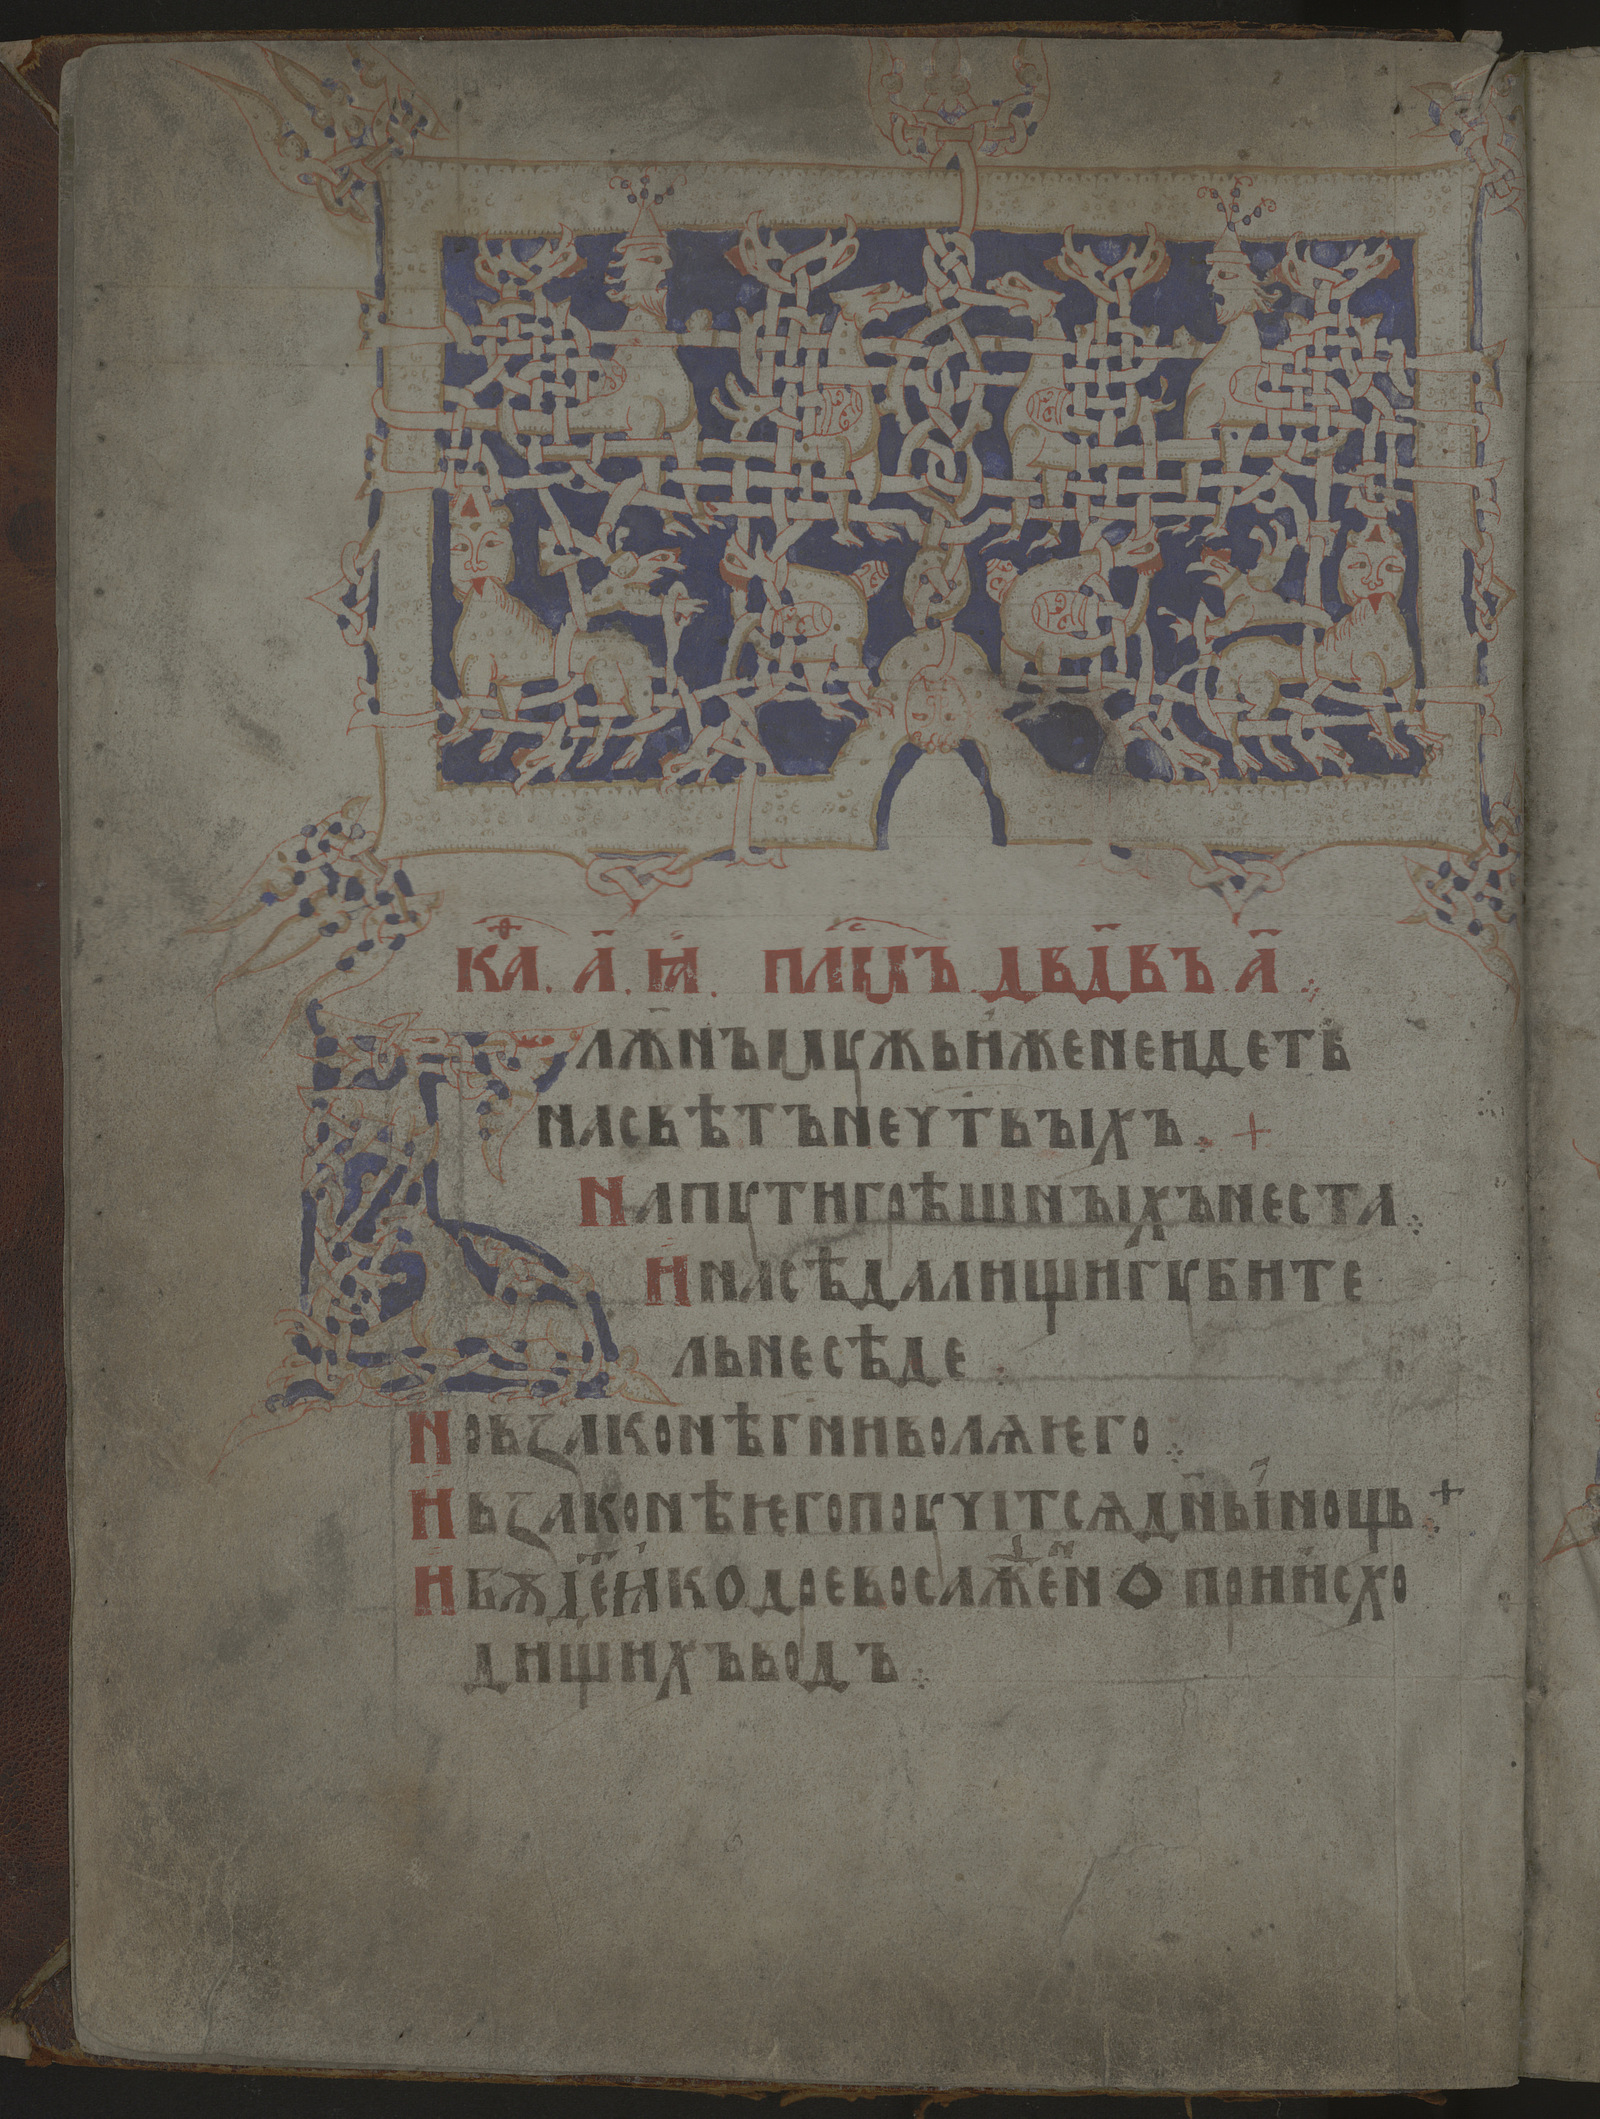 каѳ · а҃ · ꙗ · пл͠мъ дв҃двъ а҃ ⁘
Блаж҃нъ мꙋжь иже не идеть
на свѣтъ неч҃твъıхъ ⁘ +
На пꙋти грѣшнъıхъ не ста ⁘
И на сѣдалищи гꙋбите
ль не сѣде ⁘
Но в законѣ г҃ни волѧ ѥго ⁘
И в законѣ ѥго поꙋчитсѧ дн҃ь и нощь + ⁘
И бѫдеть ꙗко древо сажено при исхо
дищихъ водъ ⁘